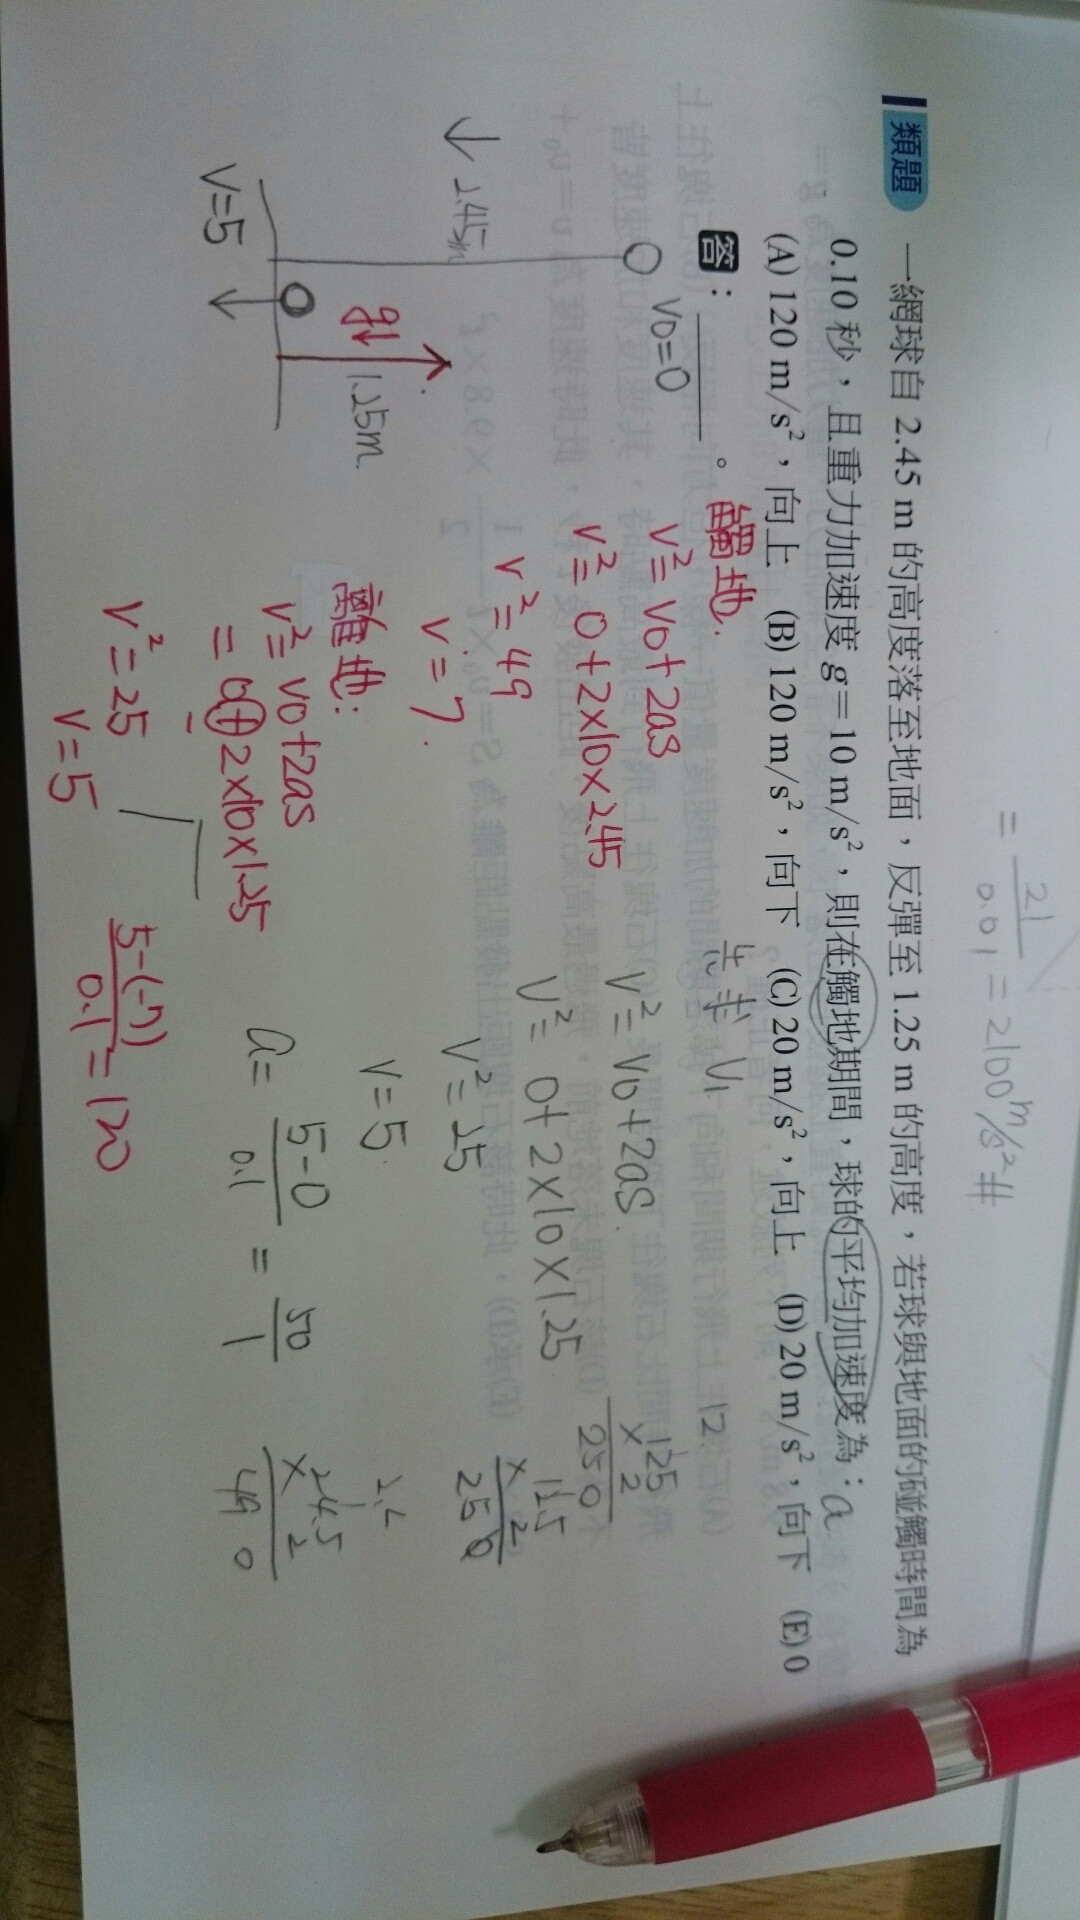 = 21/0.01 = 2100 m/s² #
類題
一網球自 2.45 m 的高度落至地面，反彈至 1.25 m 的高度，若球與地面的碰觸時間為
0.10 秒，且重力加速度 g=10 m/s²，則在觸地期間，球的平均加速度為：a
(A) 120 m/s²，向上 (B) 120 m/s²，向下 (C) 20 m/s²，向上 (D) 20 m/s²，向下 (E) 0
答：______。
V0=0
2.45m
g
1.25m
V=5
觸地.
V²=V0+2as
V²=0+2×10×2.45
V²=49
V=7.
離地:
V²=V0+2as
=0+2×10×1.25
-
V²=25
V=5
先求 V1
V²=V0+2as.
V²=0+2×10×1.25
V²=25
V=5.
a=5-0/0.1=50/1
5-(-7)/0.1=120
125
×2
250
12.5
×2
250
2.4
24.5
×2
490